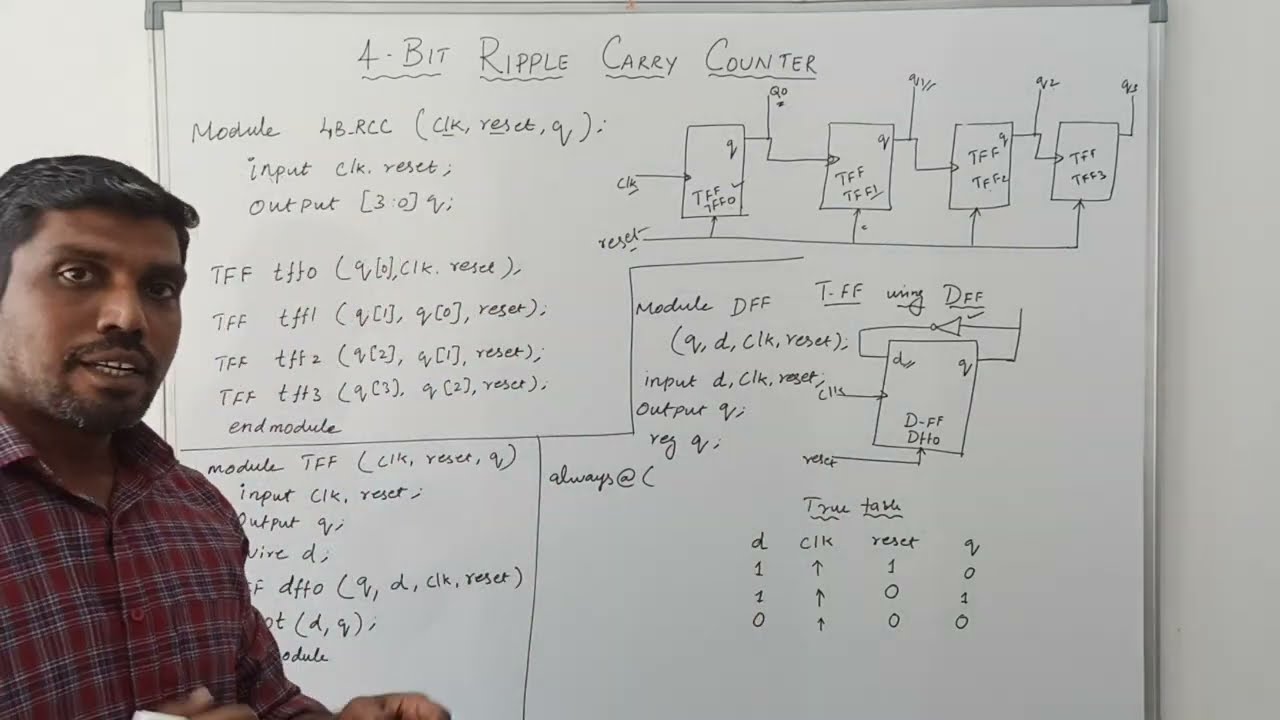 4-BIT RIPPLE CARRY COUNTER
Module 4B_RCC (Clk, reset, q);
input Clk. reset;
output [3:0] q;
TFF tff0 (q[0],Clk. reset),
TFF tff1 (q[1], q[0], reset);
TFF tff2 (q[2], q[1], reset);
TFF tff3 (q[3], q[2], reset);
endmodule
Q0
q1
q2
q3
q
q
q
Clk
TFF
TFF0
TFF
TFF1
TFF
TFF2
TFF
TFF3
reset
T-FF using DFF
Module DFF
(q, d, Clk, reset);
input d, Clk, reset;
Output q;
reg q;
always@(
d
q
Clk
D-FF
Dff0
reset
module TFF (Clk, reset, q)
input Clk, reset;
output q;
wire d;
dff0 (q, d, Clk, reset)
(d, q);
True table
d Clk reset q
1 ↑ 1 0
1 ↑ 0 1
0 ↑ 0 0